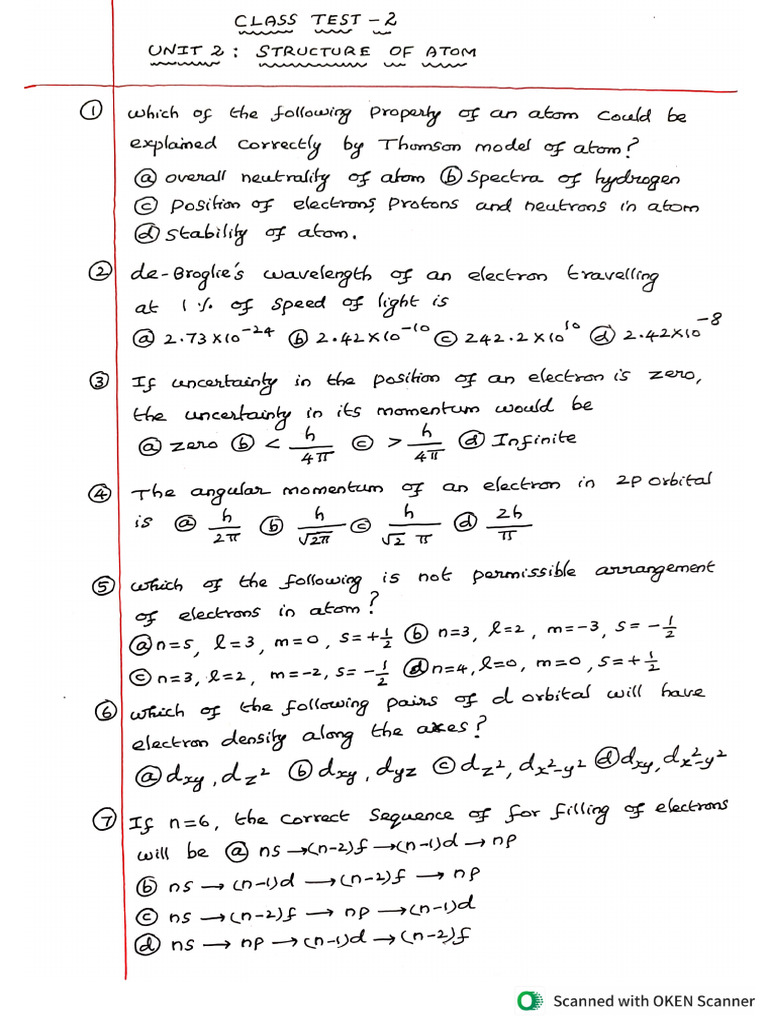 CLASS TEST - 2
UNIT 2 : STRUCTURE OF ATOM
① Which of the following Property of an atom could be
explained correctly by Thomson model of atom?
ⓐ overall neutrality of atom ⓑ Spectra of hydrogen
ⓒ Position of electrons, Protons and neutrons in atom
ⓓ Stability of atom.
② de-Broglie's wavelength of an electron travelling
at 1 % of speed of light is
ⓐ 2.73×10⁻²⁴ ⓑ 2.42×10⁻¹⁰ ⓒ 242.2×10¹⁰ ⓓ 2.42×10⁻⁸
③ If uncertainty in the position of an electron is zero,
the uncertainty in its momentum would be
ⓐ zero ⓑ < h/4π ⓒ > h/4π ⓓ Infinite
④ The angular momentum of an electron in 2p orbital
is ⓐ h/2π ⓑ h/√2π ⓒ h/√2 π ⓓ 2h/π
⑤ which of the following is not permissible arrangement
of electrons in atom?
ⓐ n=5, l=3, m=0, s=+1/2 ⓑ n=3, l=2, m=-3, s=-1/2
ⓒ n=3, l=2, m=-2, s=-1/2 ⓓ n=4, l=0, m=0, s=+1/2
⑥ which of the following pairs of d orbital will have
electron density along the axes?
ⓐ dxy, dz² ⓑ dxy, dyz ⓒ dz², dx²-y² ⓓ dxy, dx²-y²
⑦ If n=6, the correct sequence of for filling of electrons
will be ⓐ ns →(n-2)f →(n-1)d → np
ⓑ ns → (n-1)d → (n-2)f → np
ⓒ ns → (n-2)f → np → (n-1)d
ⓓ ns → np → (n-1)d → (n-2)f
Scanned with OKEN Scanner